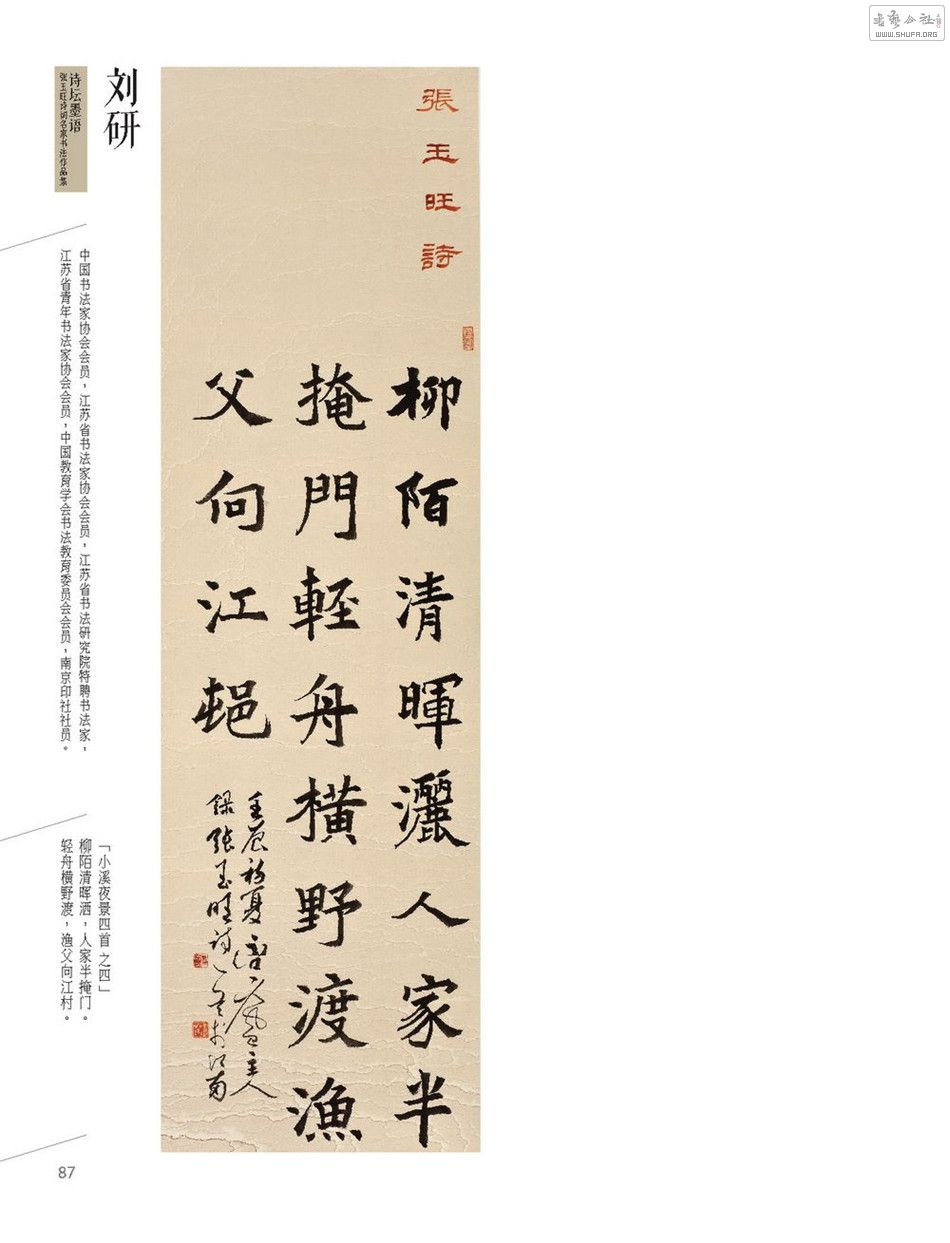 WWW.SHUFA.ORG
刘研
诗坛墨语
张玉旺诗词名家书法作品集
張玉旺詩
柳陌清暉灑人家半
掩門輕舟橫野渡漁
父向江邨
壬辰初夏
主人
錄張玉旺詩
於江南
中国书法家协会会员，江苏省书法家协会会员，江苏省书法研究院特聘书法家，
江苏省青年书法家协会会员，中国教育学会书法教育委员会会员，南京印社社员。
「小溪夜景四首 之四」
柳陌清晖洒，人家半掩门。
轻舟横野渡，渔父向江村。
87